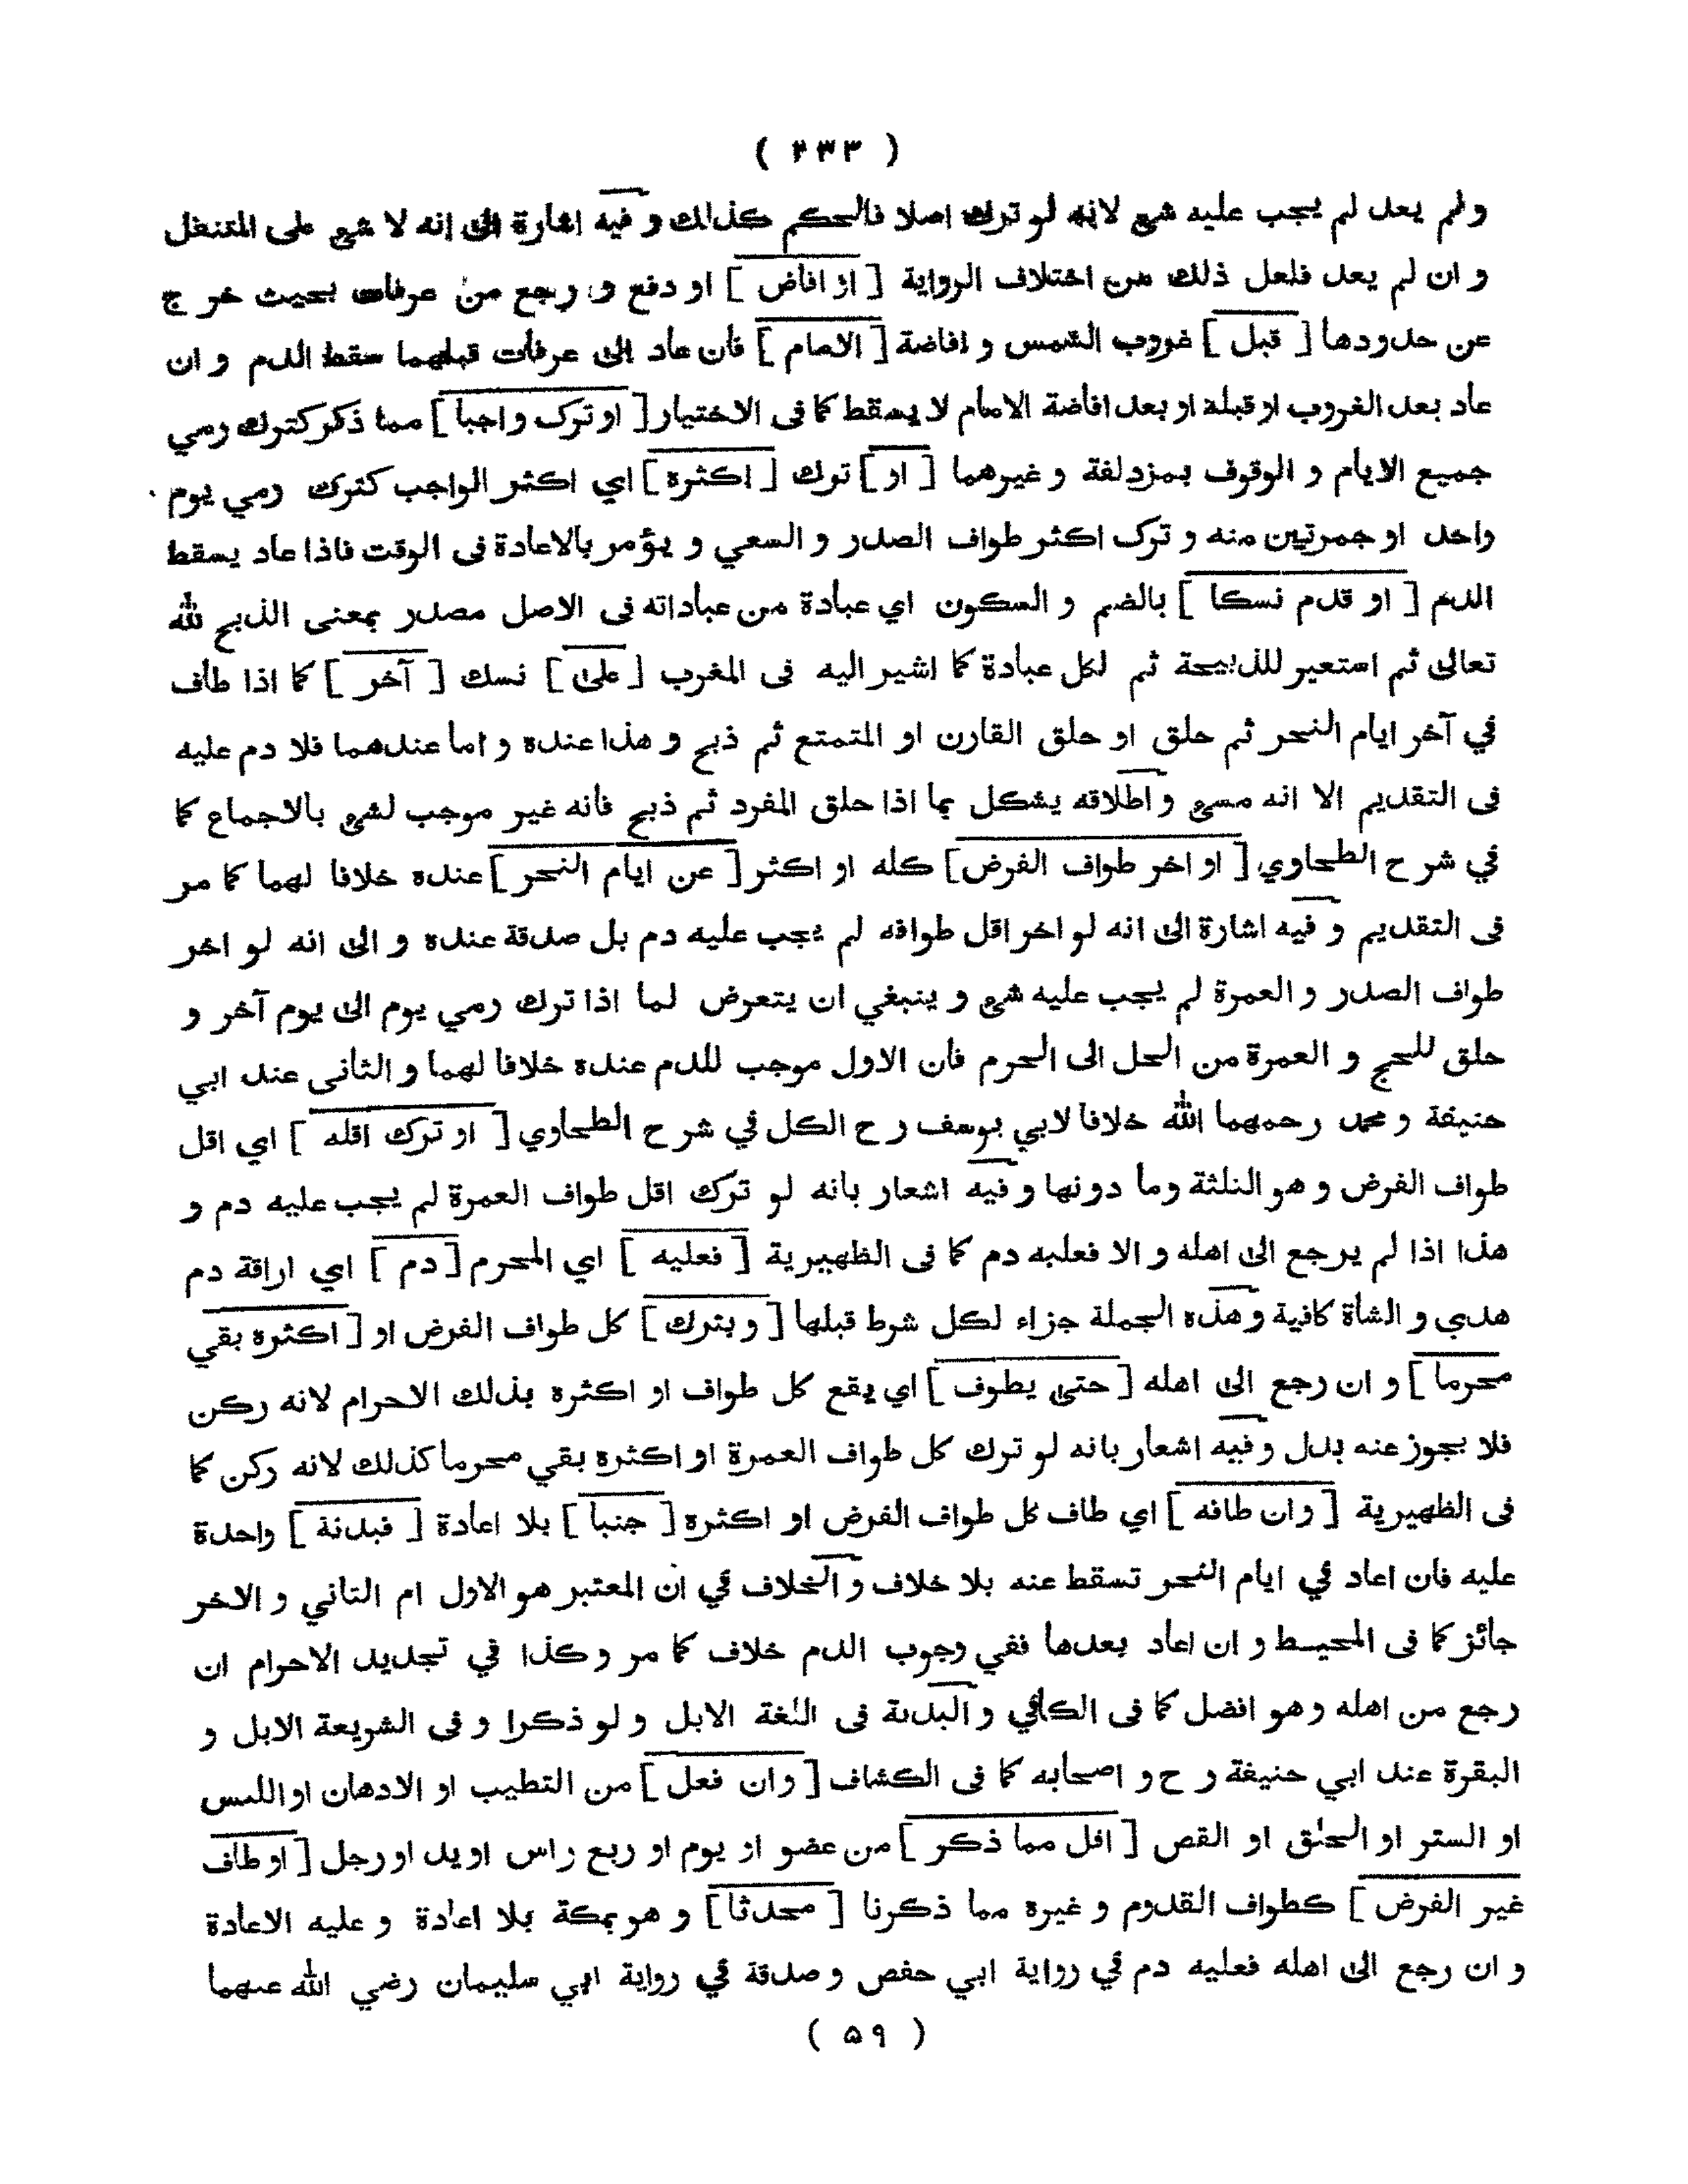 ( ۴۳۳ )
ولم يعد لم يجب عليه شيء لانه لو ترك اصلا فالحكم كذلك و فيه اشارة الى انه لا شيء على المتنفل
و ان لم يعد فلعل ذلك من اختلاف الرواية [ او افاض ] او دفع و رجع من عرفات بحيث خرج
عن حدودها [ قبل ] غروب الشمس و افاضة [ الامام ] فان عاد الى عرفات قبلهما سقط الدم و ان
عاد بعد الغروب او قبله او بعد افاضة الامام لا يسقط كما فى الاختيار [ او ترك واجبا ] مما ذكر كترك رمي
جميع الايام و الوقوف بمزدلفة و غيرهما [ او ] ترك [ اكثره ] اي اكثر الواجب كترك رمي يوم
واحد او جمرتين منه و ترك اكثر طواف الصدر و السعي و يؤمر بالاعادة فى الوقت فاذا عاد يسقط
الدم [ او قدم نسكا ] بالضم و السكون اي عبادة من عباداته فى الاصل مصدر بمعنى الذبح لله
تعالى ثم استعير للذبيحة ثم لكل عبادة كما اشير اليه فى المغرب [ على ] نسك [ آخر ] كما اذا طاف
في آخر ايام النحر ثم حلق او حلق القارن او المتمتع ثم ذبح و هذا عنده و اما عندهما فلا دم عليه
فى التقديم الا انه مسيء و اطلاقه يشكل بما اذا حلق المفرد ثم ذبح فانه غير موجب لشيء بالاجماع كما
في شرح الطحاوي [ او اخر طواف الفرض ] كله او اكثر [ عن ايام النحر ] عنده خلافا لهما كما مر
فى التقديم و فيه اشارة الى انه لو اخر اقل طوافه لم يجب عليه دم بل صدقة عنده و الى انه لو اخر
طواف الصدر و العمرة لم يجب عليه شيء و ينبغي ان يتعرض لما اذا ترك رمي يوم الى يوم آخر و
حلق للحج و العمرة من الحل الى الحرم فان الاول موجب للدم عنده خلافا لهما و الثانى عند ابي
حنيفة و محمد رحمهما الله خلافا لابي يوسف رح الكل في شرح الطحاوي [ او ترك اقله ] اي اقل
طواف الفرض و هو الثلثة وما دونها و فيه اشعار بانه لو ترك اقل طواف العمرة لم يجب عليه دم و
هذا اذا لم يرجع الى اهله و الا فعليه دم كما فى الظهيرية [ فعليه ] اي المحرم [ دم ] اي اراقة دم
هدي و الشاة كافية و هذه الجملة جزاء لكل شرط قبلها [ و بترك ] كل طواف الفرض او [ اكثره بقي
محرما ] و ان رجع الى اهله [ حتى يطوف ] اي يقع كل طواف او اكثره بذلك الاحرام لانه ركن
فلا يجوز عنه بدل و فيه اشعار بانه لو ترك كل طواف العمرة او اكثره بقي محرما كذلك لانه ركن كما
فى الظهيرية [ وان طافه ] اي طاف كل طواف الفرض او اكثره [ جنبا ] بلا اعادة [ فبدنة ] واحدة
عليه فان اعاد في ايام النحر تسقط عنه بلا خلاف و الخلاف في ان المعتبر هو الاول ام الثاني و الاخر
جائز كما فى المحيط و ان اعاد بعدها ففي وجوب الدم خلاف كما مر و كذا في تجديد الاحرام ان
رجع من اهله و هو افضل كما فى الكافي و البدنة فى اللغة الابل و لو ذكرا و فى الشريعة الابل و
البقرة عند ابي حنيفة رح و اصحابه كما فى الكشاف [ وان فعل ] من التطيب او الادهان او اللبس
او الستر او الحلق او القص [ اقل مما ذكر ] من عضو او يوم او ربع راس او يد او رجل [ او طاف
غير الفرض ] كطواف القدوم و غيره مما ذكرنا [ محدثا ] و هو بمكة بلا اعادة و عليه الاعادة
و ان رجع الى اهله فعليه دم في رواية ابي حفص و صدقة في رواية ابي سليمان رضي الله عنهما
( ۵۹ )